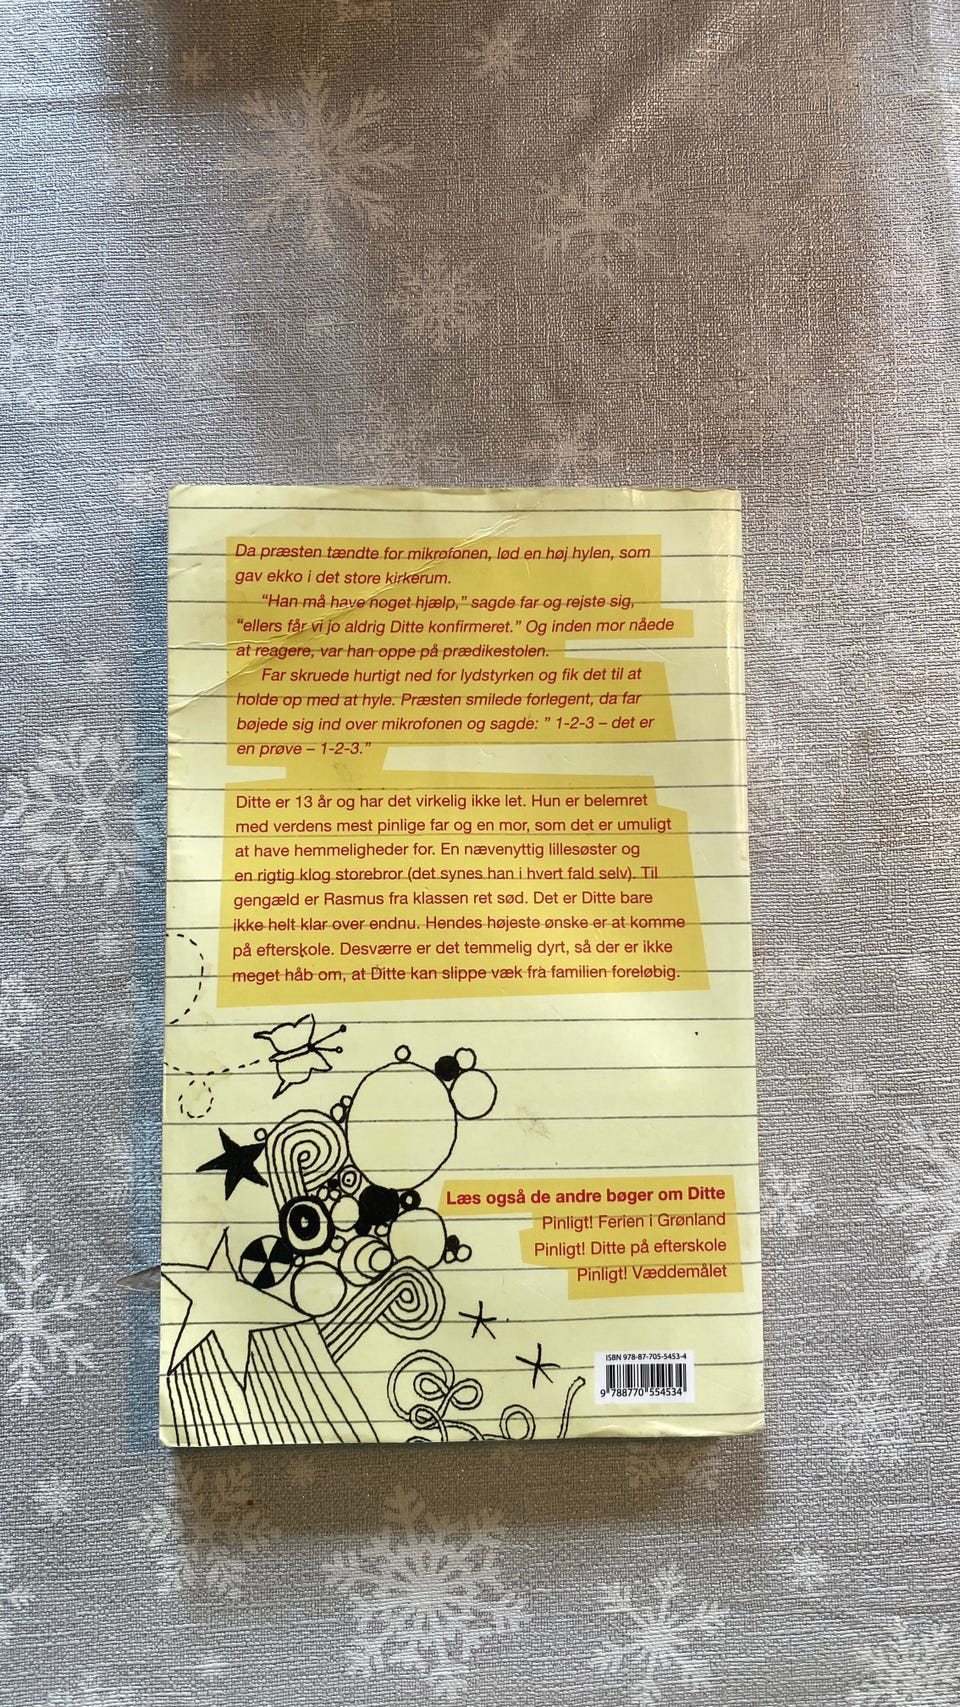 Da præsten tændte for mikrofonen, lød en høj hylen, som
gav ekko i det store kirkerum.
"Han må have noget hjælp," sagde far og rejste sig,
"ellers får vi jo aldrig Ditte konfirmeret." Og inden mor nåede
at reagere, var han oppe på prædikestolen.
Far skruede hurtigt ned for lydstyrken og fik det til at
holde op med at hyle. Præsten smilede forlegent, da far
bøjede sig ind over mikrofonen og sagde: " 1-2-3 – det er
en prøve – 1-2-3."
Ditte er 13 år og har det virkelig ikke let. Hun er belemret
med verdens mest pinlige far og en mor, som det er umuligt
at have hemmeligheder for. En nævenyttig lillesøster og
en rigtig klog storebror (det synes han i hvert fald selv). Til
gengæld er Rasmus fra klassen ret sød. Det er Ditte bare
ikke helt klar over endnu. Hendes højeste ønske er at komme
på efterskole. Desværre er det temmelig dyrt, så der er ikke
meget håb om, at Ditte kan slippe væk fra familien foreløbig.
Læs også de andre bøger om Ditte
Pinligt! Ferien i Grønland
Pinligt! Ditte på efterskole
Pinligt! Væddemålet
ISBN 978-87-705-5453-4
9 788770 554534